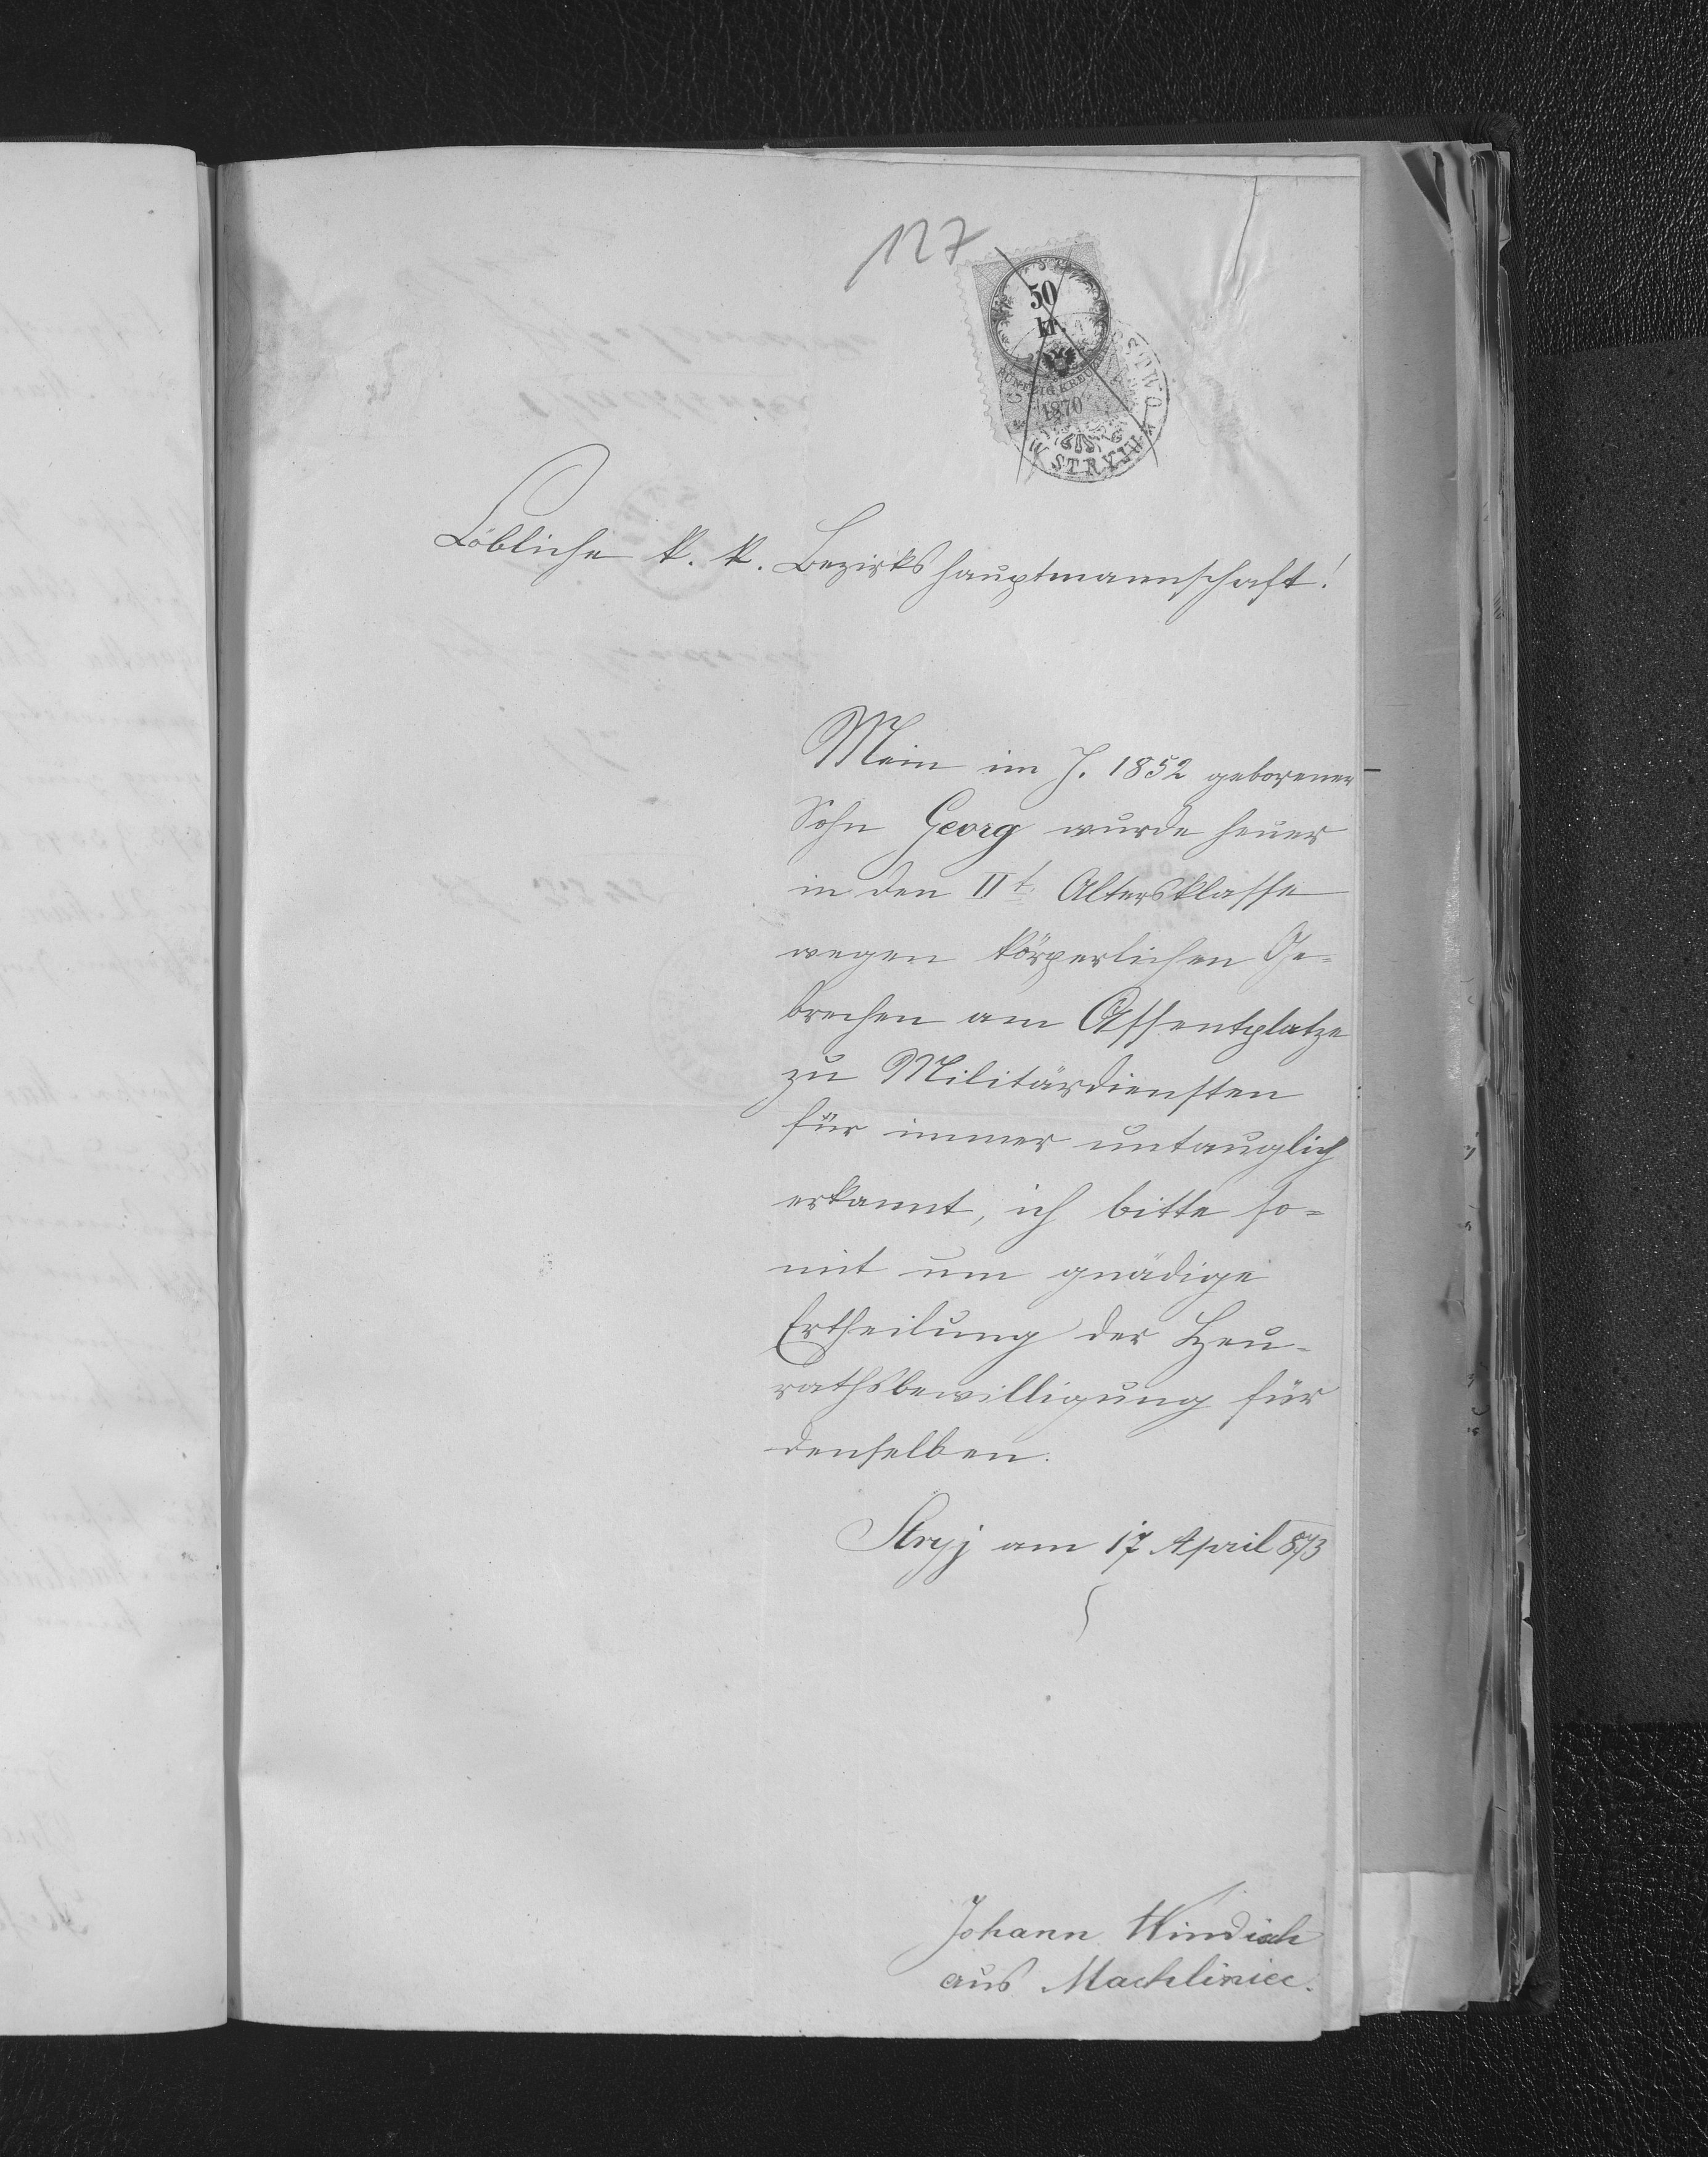 127
50
kr.
FÜNFZIG KREUZER
1870
W STRYJU
Löbliche k. k. Bezirkshauptmannschaft!
Mein im J. 1852 geborener
Sohn Georg wurde heuer
in den IIt. Altersklasse
wegen körperlichen Ge=
brechen am Assentplatze
zu Militärdiensten
für immer untauglich
erkannt, ich bitte so=
mit um gnädige
Ertheilung der Heu=
rathsbewilligung für
denselben.
Stryj am 17 April 873
Johann Windisch
aus Machliniec.